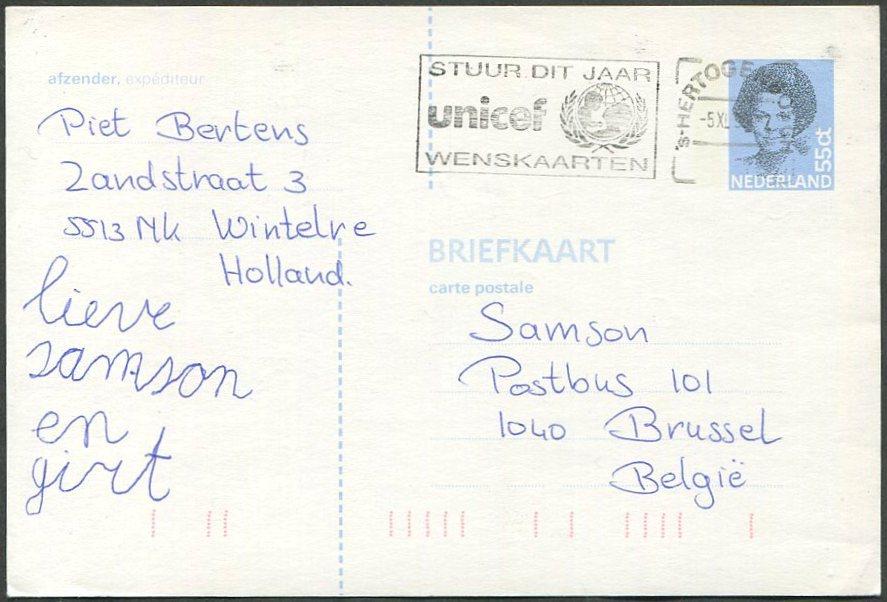 afzender, expéditeur
Piet Bertens
Zandstraat 3
5513 MK Wintelre
Holland.
lieve
samson
en
girt
STUUR DIT JAAR
unicef
WENSKAARTEN
'S-HERTOGE
-5XI
NEDERLAND
55ct
BRIEFKAART
carte postale
Samson
Postbus 101
1040 Brussel
België